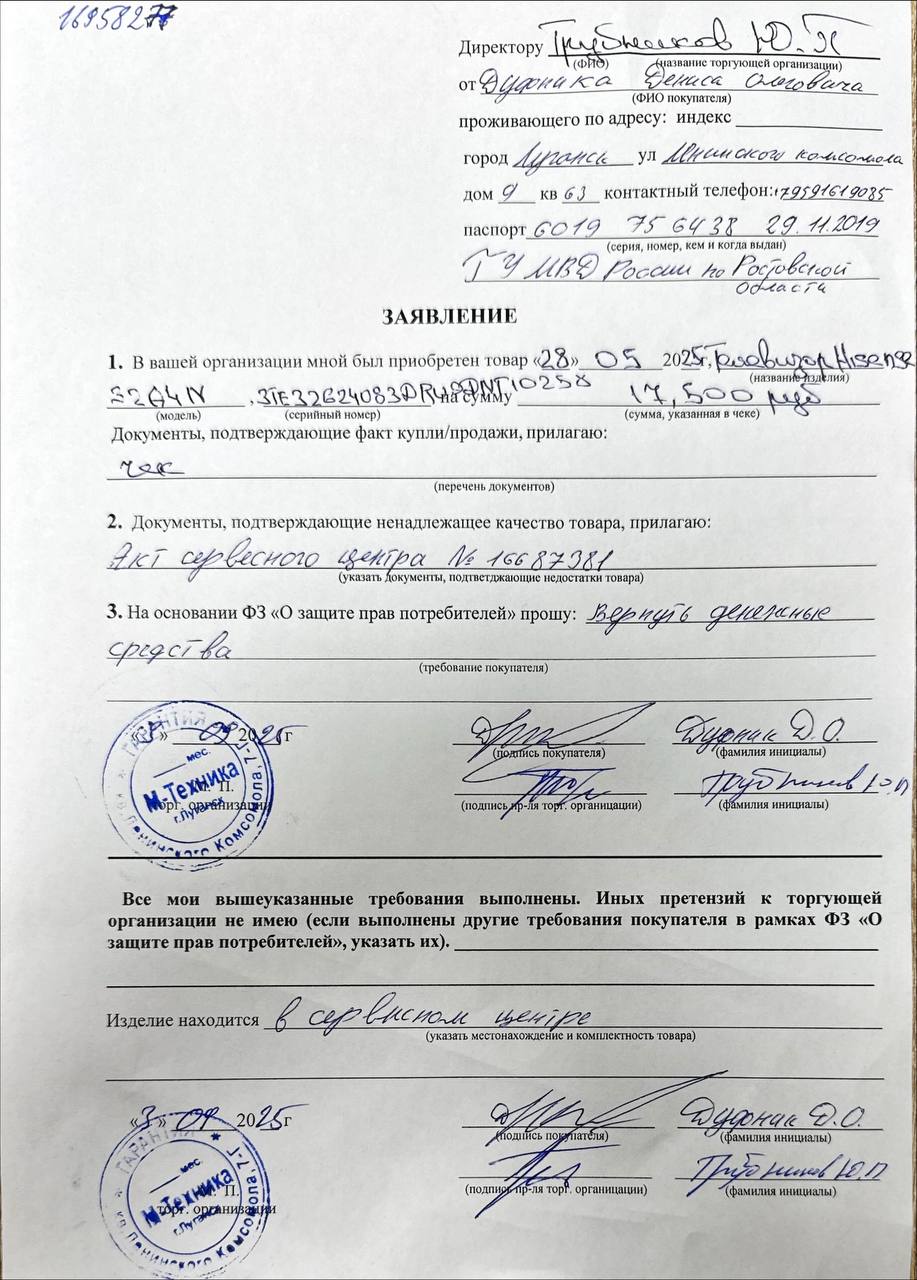 16958277
Директору Трубников Ю.П
(ФИО) (название торгующей организации)
от Дудника Дениса Олеговича
(ФИО покупателя)
проживающего по адресу: индекс
город Луганск ул Ленинского комсомола
дом 9 кв 63 контактный телефон:+79591619085
паспорт 6019 756438 29.11.2019
(серия, номер, кем и когда выдан)
ГУ МВД России по Ростовской
области
ЗАЯВЛЕНИЕ
1. В вашей организации мной был приобретен товар «28» 05 2025г, Телевизор Hisense
(название изделия)
32A4N , на сумму 17,500 руб
(модель) (серийный номер) (сумма, указанная в чеке)
Документы, подтверждающие факт купли/продажи, прилагаю:
чек
(перечень документов)
2. Документы, подтверждающие ненадлежащее качество товара, прилагаю:
Акт сервесного центра № 16687381
(указать документы, подтветджающие недостатки товара)
3. На основании ФЗ «О защите прав потребителей» прошу: Вернуть денежные
средства
(требование покупателя)
«3» 09 2025г Дудник Д.О.
(подпись покупателя) (фамилия инициалы)
М. П. Трубников Ю.П
торг. организации (подпись пр-ля торг. органицации) (фамилия инициалы)
ГАРАНТИЯ
мес.
М-Техника
г.Луганск
кв.Ленинского Комсомола, 7-Г
Все мои вышеуказанные требования выполнены. Иных претензий к торгующей
организации не имею (если выполнены другие требования покупателя в рамках ФЗ «О
защите прав потребителей», указать их).
Изделие находится в сервисном центре
(указать местонахождение и комплектность товара)
«3» 09 2025г Дудник Д.О.
(подпись покупателя) (фамилия инициалы)
М. П. Трубников Ю.П
торг. организации (подпись пр-ля торг. органицации) (фамилия инициалы)
ГАРАНТИЯ
мес.
М-Техника
г.Луганск
кв.Ленинского Комсомола, 7-Г